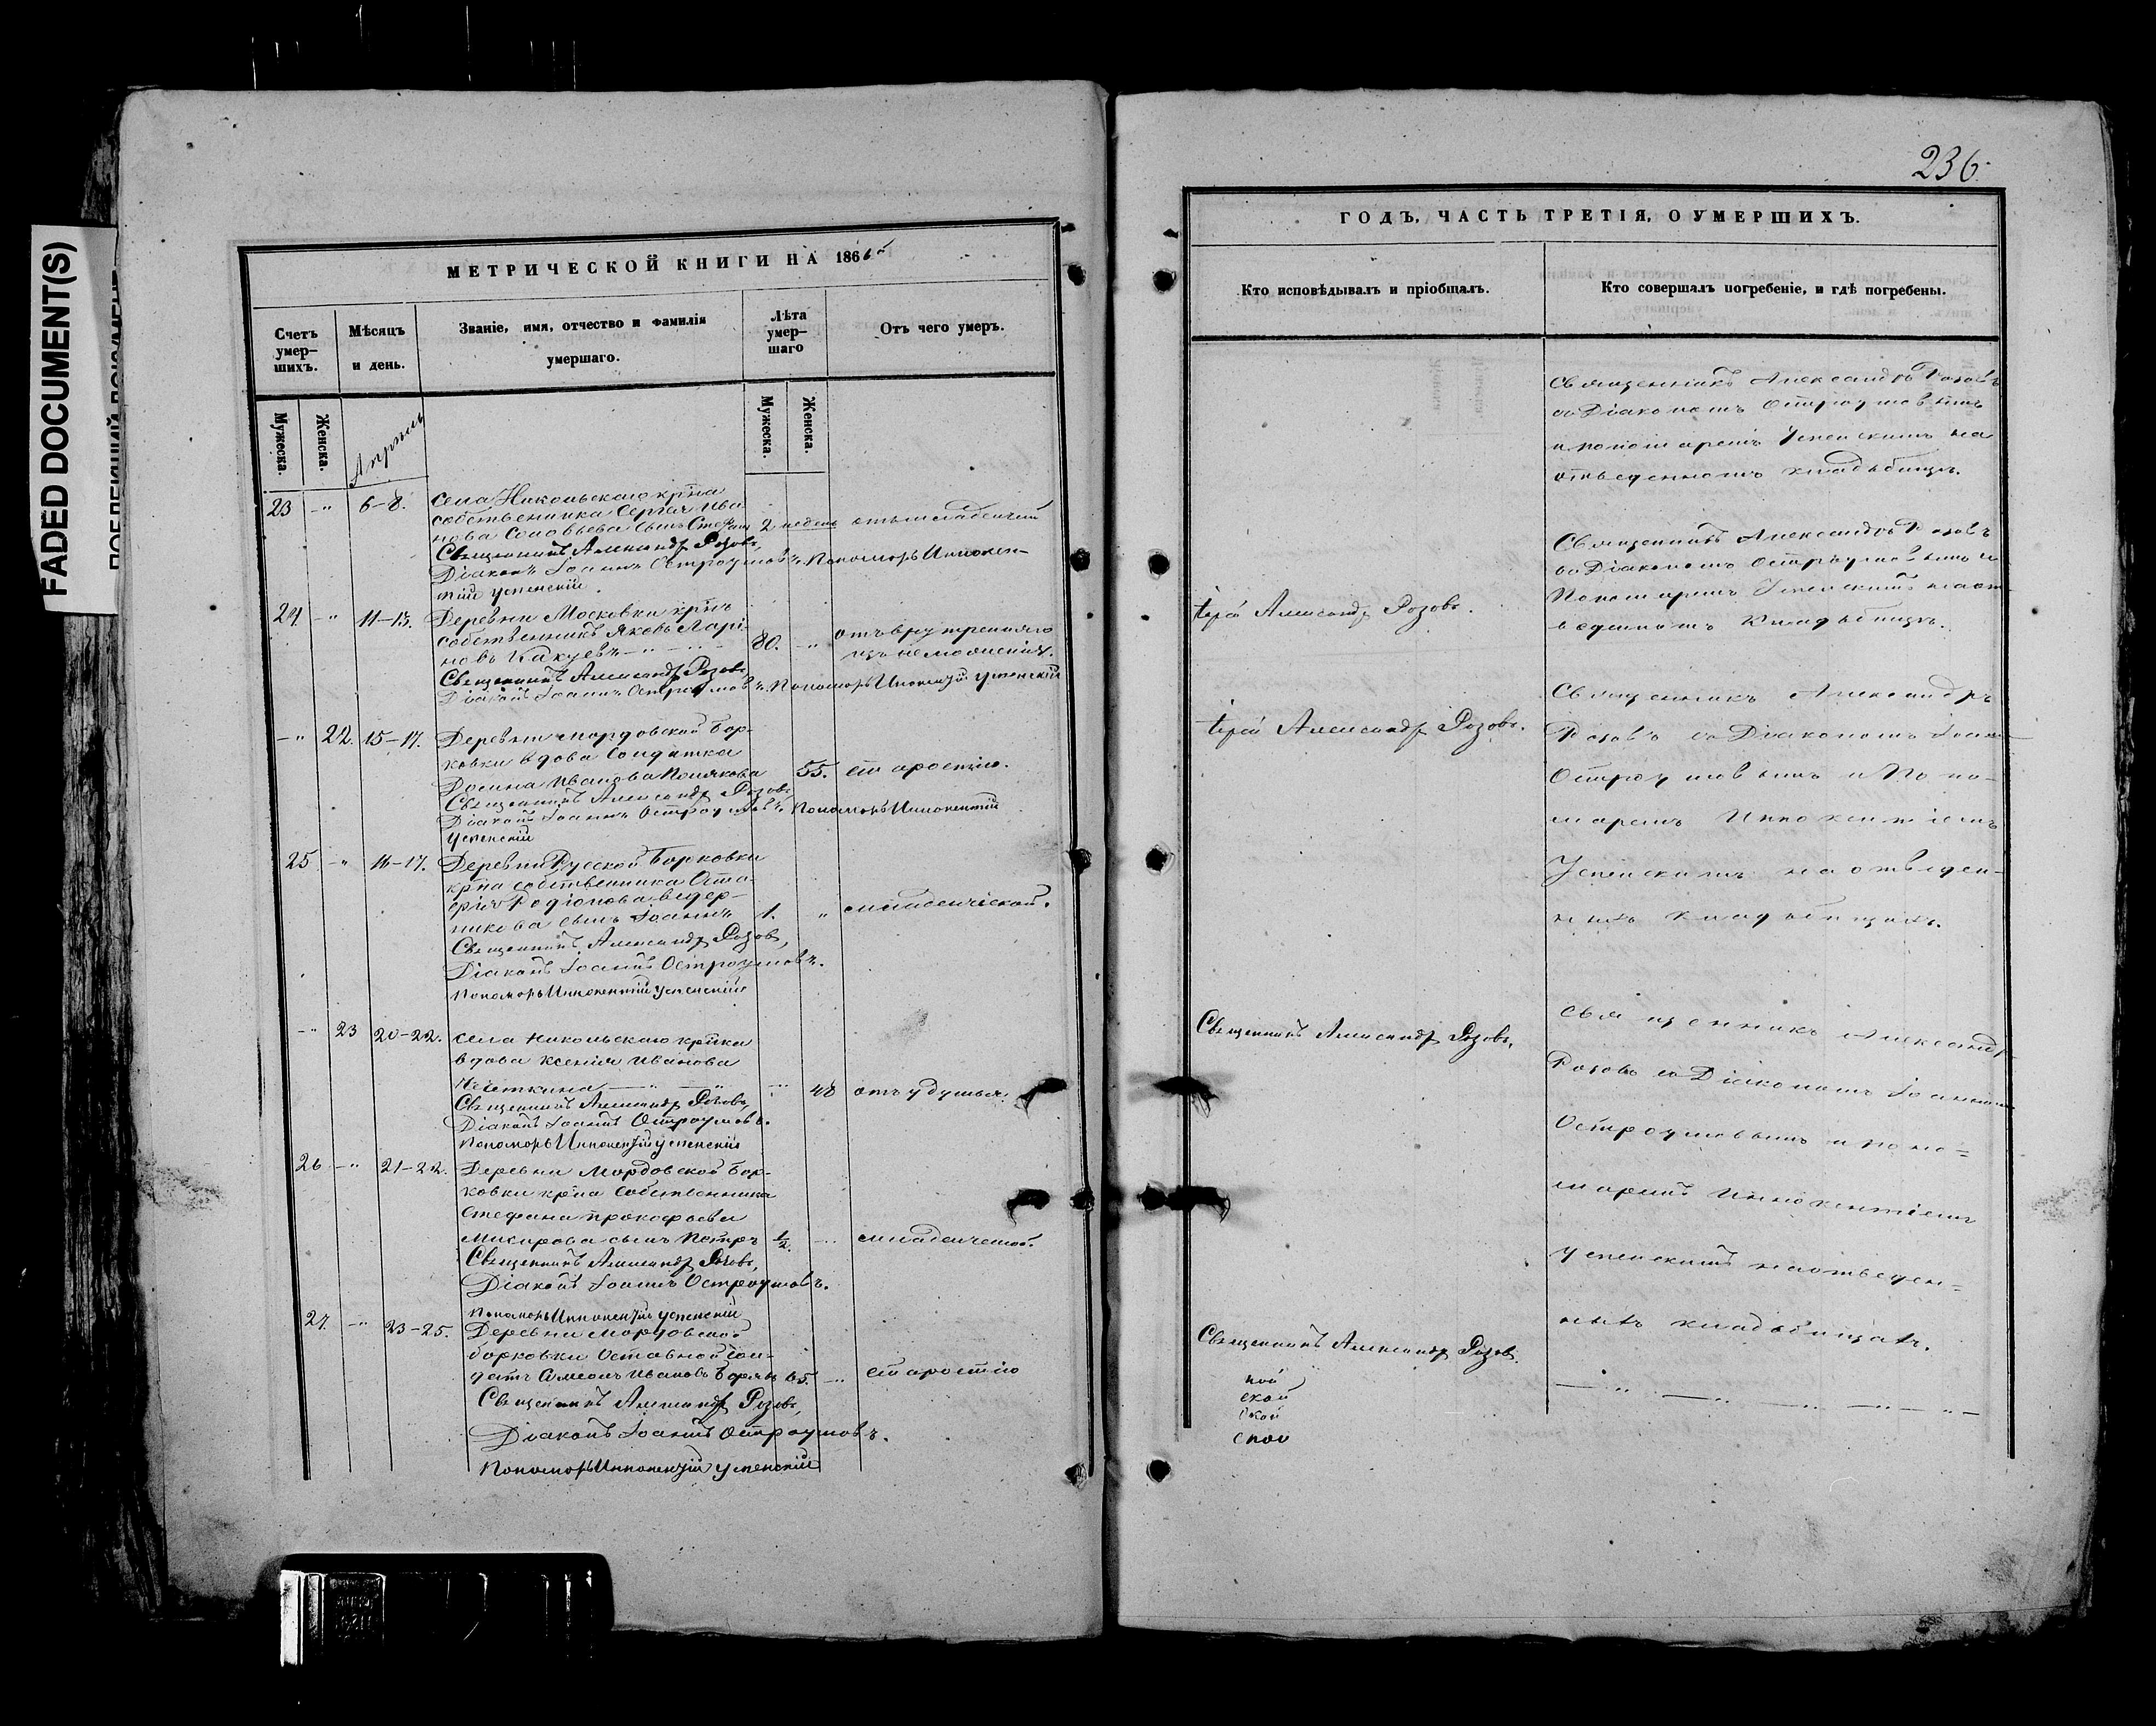 FADED DOCUMENT(S)
МЕТРИЧЕСКОЙ КНИГИ НА 186
Счетъ умер-шихъ.
Мѣсяцъ и день.
Званіе, имя, отчество и фамилія умершаго.
Лѣта умер-шаго
Отъ чего умеръ.
Мужеска.
Женска.
Апрѣль
Мужеска.
Женска.
23 -„ 6-8. Села Никольскаго крн̃а
собственника Сергѣя Ива
нова Соловьева сынъ Стефанъ 2 недель отъ младенчей
Священникъ Александръ Розовъ,
Діаконъ Іоаннъ Остроумовъ. Пономорь Иннокен-
тій Успенскій.
24. -„ 11-13. Деревни Московки крн̃ъ
собственникъ Яковъ Ларі-
новъ Какуевъ 80. -„ отъ внутренняго
изнеможенія.
Священникъ Александръ Розовъ,
Діаконъ Іоаннъ Остроумовъ. Пономорь Инокентій Успенскій
-„ 22. 15-17. Деревни Мордовской Бор-
ковки вдова Солдатка
Иванова Полякова 55. старостію.
Священникъ Александръ Розовъ,
Діаконъ Іоаннъ Остроумовъ. Пономорь Иннокентій
Успенскій
25 -„ 16-17. Деревни Русской Борковки
крн̃а собственника
Родіонова Ведер-
никова сынъ Іоаннъ 1. „ младенческой.
Священникъ Александръ Розовъ,
Діаконъ Іоаннъ Остроумовъ.
Пономорь Иннокентій Успенскій
-„ 23 20-22. Села Никольскаго крн̃ка
вдова Ксенія Иванова
48 отъ удушья.
Священникъ Александръ Розовъ,
Діаконъ Іоаннъ Остроумовъ.
Пономорь Иннокентій Успенскій
26 -„ 21-22. Деревни Мордовской Бор-
ковки крн̃а собственника
Стефана Прокофьева
сынъ Петръ ½. младенческой.
Священникъ Александръ Розовъ,
Діаконъ Іоаннъ Остроумовъ.
Пономорь Иннокентій Успенскій
27. -„ 23-25. Деревни Мордовской
Борковки Отставной Сол-
датъ Ивановъ 65. -„ старостію
Священникъ Александръ Розовъ,
Діаконъ Іоаннъ Остроумовъ.
Пономорь Иннокентій Успенскій
236
ГОДЪ, ЧАСТЬ ТРЕТІЯ, О УМЕРШИХЪ.
Кто исповѣдывалъ и пріобщалъ.
Кто совершалъ погребеніе, и гдѣ погребены.
Священникъ Александръ Розовъ
со Діакономъ Остроумовымъ
и пономаремъ Успенскимъ на
отведенномъ кладьбищѣ.
Іерей Александръ Розовъ.
Священникъ Александръ Розовъ
со Діакономъ Остроумовымъ и
Пономаремъ Успенскимъ наот
веденномъ Кладьбищѣ.
Іерей Александръ Розовъ.
Священникъ Александръ
Розовъ со Діакономъ Іоан
Остроумовымъ и Поно-
маремъ Иннокентіемъ
Успенскимъ на отведен-
ныхъ кладьбищахъ.
Священникъ Александръ Розовъ.
Священникъ Александр
Розовъ со Діакономъ Іоанномъ
Остроумовымъ и поно=
маремъ Иннокентіемъ
Успенскимъ наотведен=
ныхъ кладьбищахъ.
Священникъ Александръ Розовъ.
ной
ской
ской